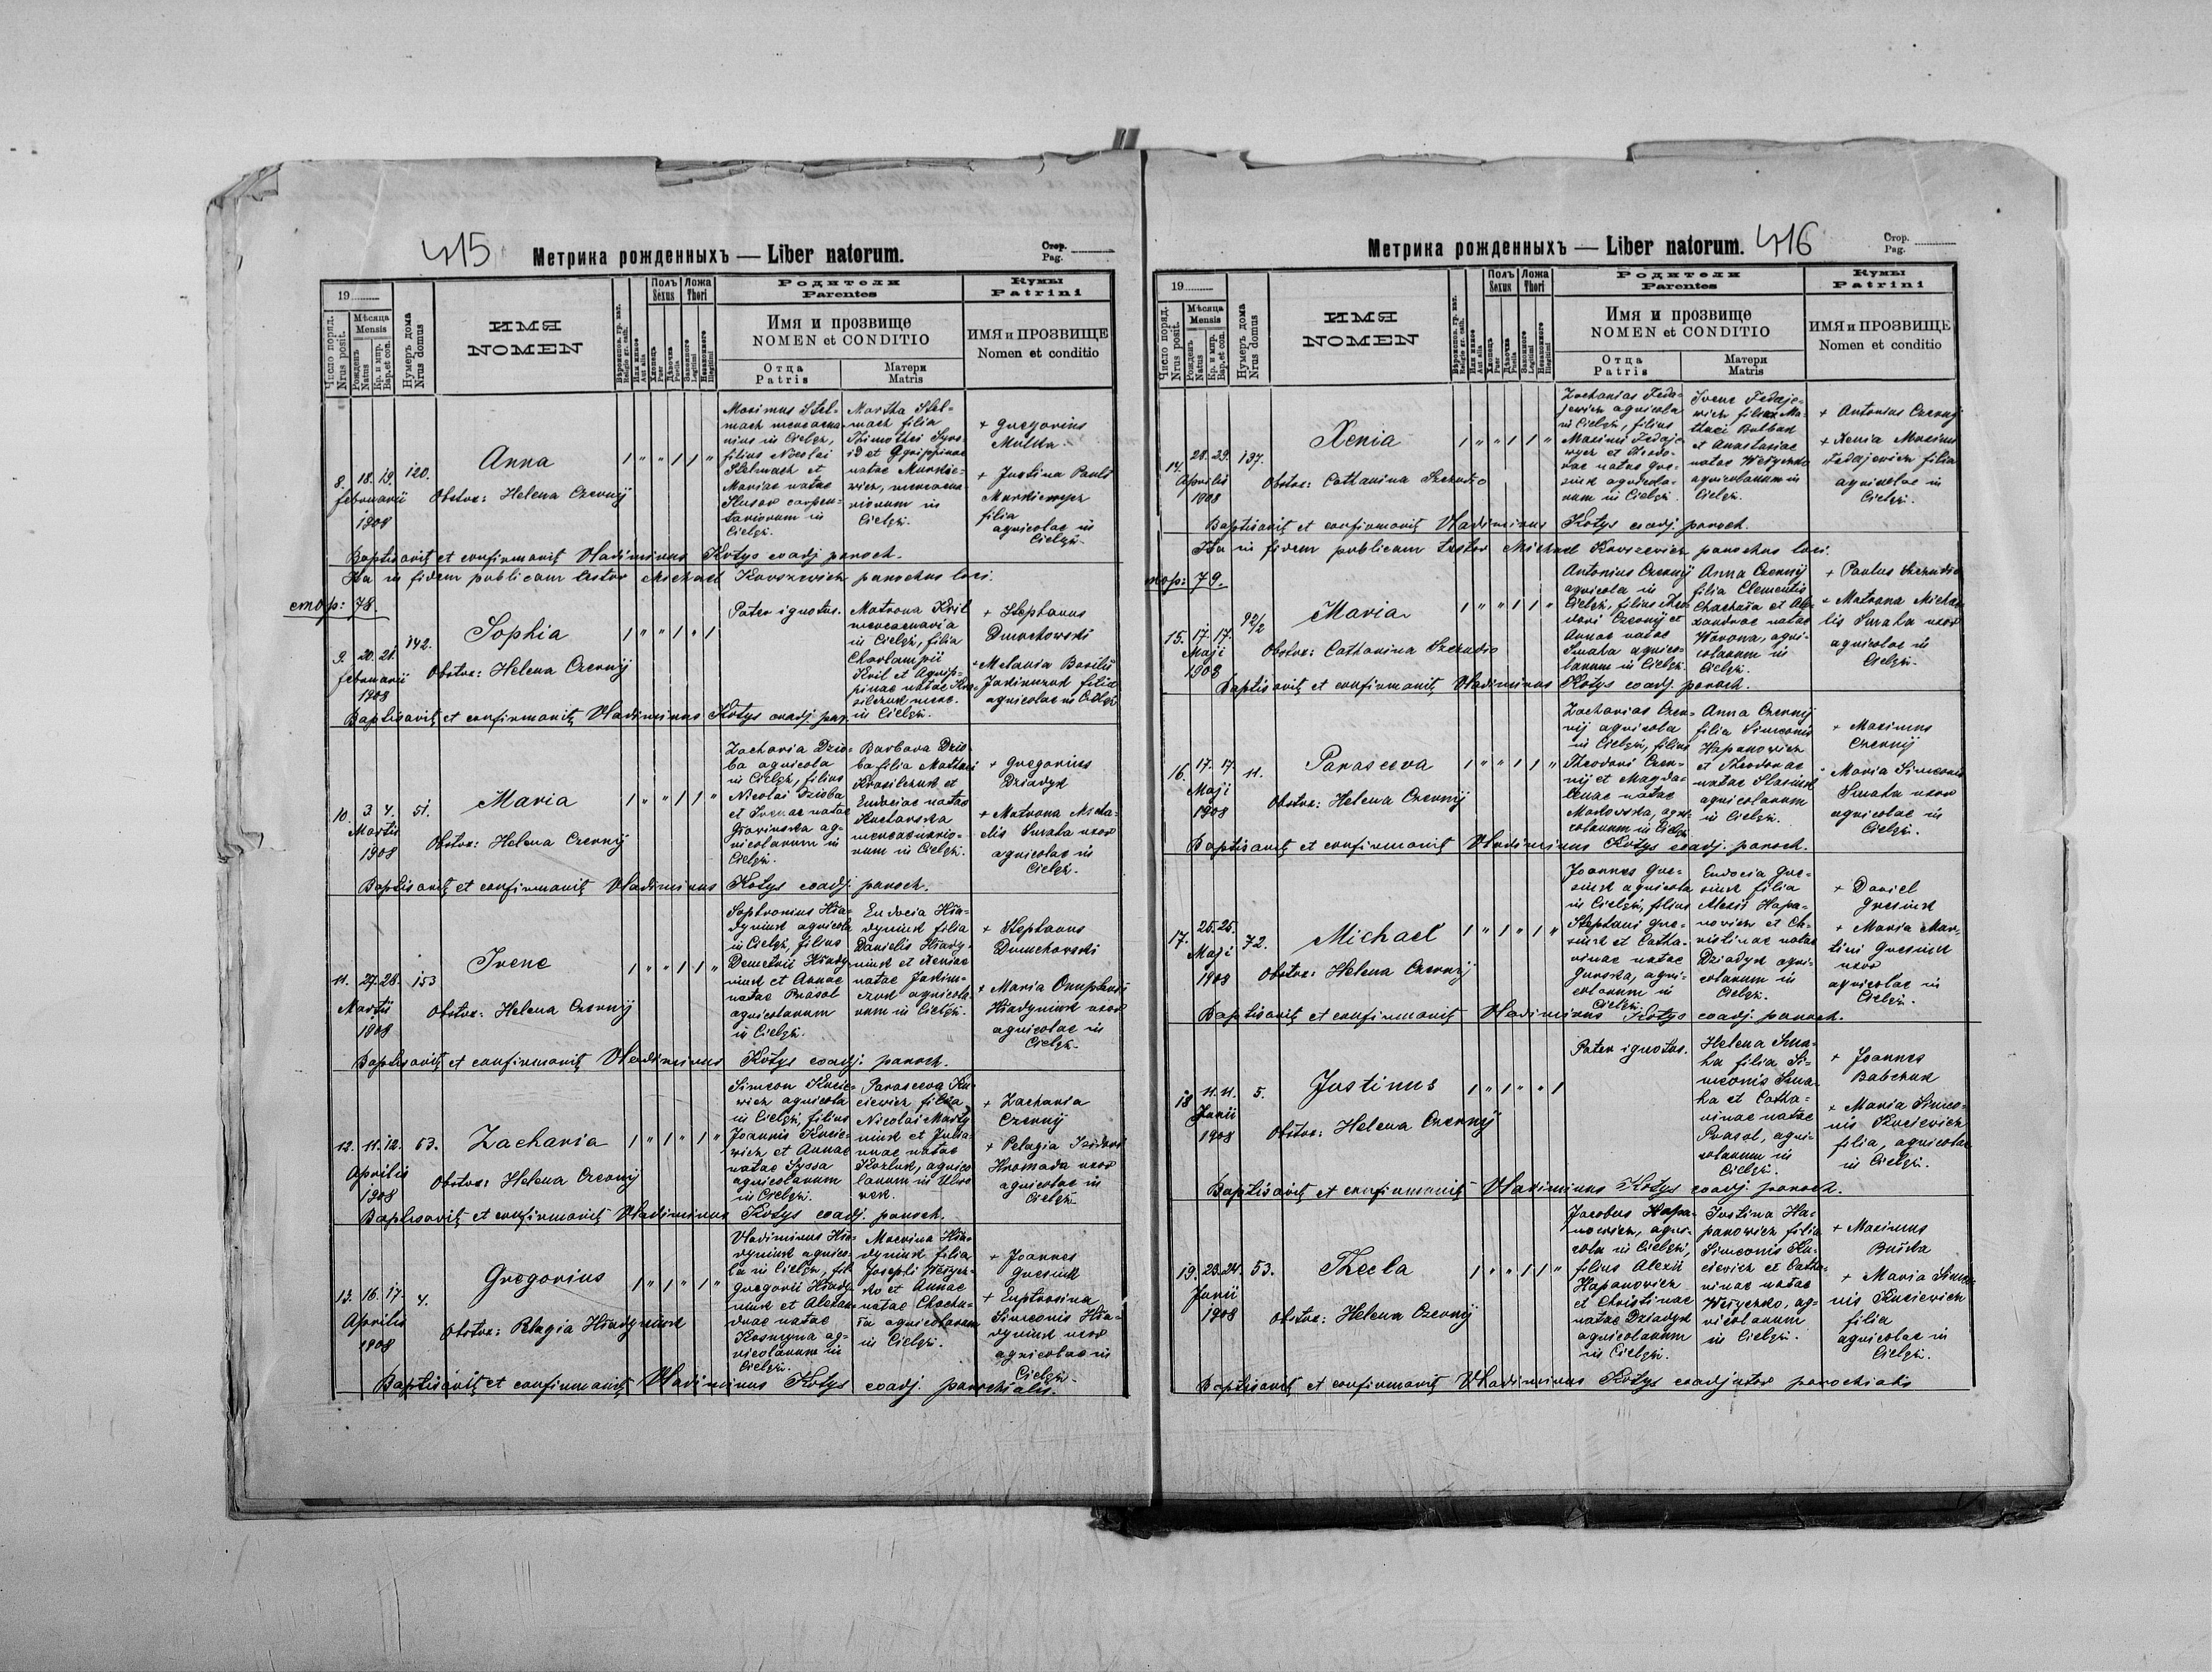 415
Метрика рожденныхъ — Liber natorum.
Стор.
Pag.
19
Число поряд.
Nrus posit.
Мѣсяца
Mensis
Рожденъ
Natus
Кр. и мир.
Bap. et con.
Нумеръ дома
Nrus domus
ИМЯ
NOMEN
Вѣроиспов. гр. кат.
Religio gr. cath.
Или инное
Aut alia
Полъ
Sexus
Хлопецъ
Puer
Дѣвочка
Puella
Ложа
Thori
Законного
Legitimi
Незаконного
Illegitimi
Родители
Parentes
Имя и прозвище
NOMEN et CONDITIO
Отца
Patris
Матери
Matris
Кумы
Patrini
ИМЯ и ПРОЗВИЩЕ
Nomen et conditio
8. 18. 19. 120.
Februarii
1908
Anna
Obstrx: Helena Czernij
1 " " 1 1 "
Maximus Stel-
mach mercena-
rius in Cielęż,
filius Nicolai
Stelmach et
Mariae natae
Slusar carpen-
tariorum in
Cielęż.
Martha Stel-
mach filia
Timothei
natae
in
Cielęż.
+ Gregorius
+ Justina Pauli
filia
agricolae in
Cielęż.
Baptisavit et confirmavit Vladimirus Kotys coadj. paroch.
Ita in fidem publicam testor Michael Korszewicz parochus loci.
стор: 78.
9. 20. 21. 142.
Februarii
1908
Sophia
Obstrx: Helena Czernij
1 " " 1 " 1
Pater ignotus.
Matrona Kril
mercenaria
in Cielęż, filia
Charlampii
Kril et Agrip-
pinae natae
in Cielęż.
+ Stephanus
Dmochowski
+ Melania Basilii
filia
agricolae in Cielęż
Baptisavit et confirmavit Vladimirus Kotys coadj. par.
10. 3. 4. 51.
Martii
1908
Maria
Obstrx: Helena Czernij
1 " " 1 1 "
Zacharia Dzio-
ba agricola
in Cielęż, filius
Nicolai Dzioba
et Irenae natae
ag-
ricolarum in
Cielęż.
Barbara Dzio-
ba filia Matthaei
Krasilczuk et
Eudociae natae
Kucharska
mercenario-
rum in Cielęż.
+ Gregorius
Dziadyk
+ Matrona Micha-
elis Smaha uxor
agricolae in
Cielęż.
Baptisavit et confirmavit Vladimirus Kotys coadj. paroch.
11. 27. 28. 153
Martii
1908
Irene
Obstrx: Helena Czernij
1 " " 1 1 "
Sophronius Hła-
dyniuk agricola
in Cielęż, filius
Demetrii Hłady-
niuk et Annae
natae Prasol
agricolarum
in Cielęż.
Eudocia Hła-
dyniuk filia
Danielis Hłady-
niuk et Xeniae
natae Jakim-
czuk agricola-
rum in Cielęż.
+ Stephanus
Dmochowski
+ Maria Onuphrii
Hładyniuk uxor
agricolae in
Cielęż.
Baptisavit et confirmavit Vladimirus Kotys coadj. paroch.
12. 11. 12. 63.
Aprilis
1908
Zacharia
Obstrx: Helena Czernij
1 " 1 " 1 "
Simeon Kucie-
wicz agricola
in Cielęż, filius
Joannis Kucie-
wicz et Annae
natae Syssa
agricolarum
in Cielęż.
Parasceva Ku-
ciewicz filia
Nicolai Marty-
niuk et Julia-
nnae natae
Kozluk, agrico-
larum in
+ Zacharia
Czernij
+ Pelagia Isidori
Hromada uxor
agricolae in
Cielęż.
Baptisavit et confirmavit Vladimirus Kotys coadj. paroch.
13. 16. 17. 4.
Aprilis
1908
Gregorius
Obstrx: Pelagia Hładyniuk
1 " 1 " 1 "
Vladimirus Hła-
dyniuk agrico-
la in Cielęż, fil.
Gregorii Hłady-
niuk et Alexan-
drae natae
Kosmyna ag-
ricolarum in
Cielęż.
Macrina Hła-
dyniuk filia
Josephi Weżycz-
ko et Annae
natae Chachu-
ła agricolarum
in Cielęż.
+ Joannes
Gresiuk
+ Euphrosina
Simeonis Hła-
dyniuk uxor
agricolae in
Cielęż.
Baptisavit et confirmavit Vladimirus Kotys coadj. parochialis.
416
Метрика рожденныхъ — Liber natorum.
Стор.
Pag.
19
Число поряд.
Nrus posit.
Мѣсяца
Mensis
Рожденъ
Natus
Кр. и мир.
Bap. et con.
Нумеръ дома
Nrus domus
ИМЯ
NOMEN
Вѣроиспов. гр. кат.
Religio gr. cath.
Или инное
Aut alia
Полъ
Sexus
Хлопецъ
Puer
Дѣвочка
Puella
Ложа
Thori
Законного
Legitimi
Незаконного
Illegitimi
Родители
Parentes
Имя и прозвище
NOMEN et CONDITIO
Отца
Patris
Матери
Matris
Кумы
Patrini
ИМЯ и ПРОЗВИЩЕ
Nomen et conditio
14. 28. 29. 137.
Aprilis
1908
Xenia
Obstrx: Catharina Szkudio
1 " " 1 1 "
Zacharias Feda-
jewicz agricola
in Cielęż, filius
Maximi Fedaje-
wycz et Theodo-
rae natae Gre-
siuk agricola-
rum in Cielęż.
Irene Fedaje-
wicz filia Ma-
tthaei Bulbak
et Anastasiae
natae Weżyczko
agricolarum in
Cielęż.
+ Antonius Czernij
+ Xenia Maximi
Fedajewicz filia
agricolae in
Cielęż.
Baptisavit et confirmavit Vladimirus Kotys coadj. paroch.
Ita in fidem publicam testor Michael Korszewicz parochus loci.
стор: 79.
15. 17. 17. 92/2
Maji
1908
Maria
Obstrx: Catharina Szkudio
1 " " 1 1 "
Antonius Czernij
agricola in
Cielęż, filius Theo-
dori Czernij et
Annae natae
Smaha agrico-
larum in Cielęż.
Anna Czernij
filia Clementis
Chachuła et Ale-
xandrae natae
Worona, agri-
colarum in
Cielęż.
+ Paulus
+ Matrona Michae-
lis Smaha uxor
agricolae in
Cielęż.
Baptisavit et confirmavit Vladimirus Kotys coadj. paroch.
16. 17. 17. 11.
Maji
1908
Parasceva
Obstrx: Helena Czernij
1 " " 1 1 "
Zacharias Czer-
nij agricola
in Cielęż, filius
Theodori Czer-
nij et Magda-
lenae natae
agri-
colarum in Cielęż.
Anna Czernij
filia Simeonis
Hapanowicz
et Theodorae
natae Stasiuk
agricolarum
in Cielęż.
+ Maximus
Czernij
+ Maria Simeonis
Smaha uxor
agricolae in
Cielęż.
Baptisavit et confirmavit Vladimirus Kotys coadj. paroch.
17. 25. 25. 72.
Maji
1908
Michael
Obstrx: Helena Czernij
1 " 1 " 1 "
Joannes Gre-
siuk agricola
in Cielęż, filius
Stephani Gre-
siuk et Catha-
rinae natae
Gurska, agri-
colarum in
Cielęż.
Eudocia Gre-
siuk filia
Alexii Hapa-
nowicz et Ch-
ristinae natae
Dziadyk agri-
colarum in
Cielęż.
+ Daniel
Gresiuk
+ Maria Mar-
tini Gresiuk
uxor
agricolae in
Cielęż.
Baptisavit et confirmavit Vladimirus Kotys coadj. paroch.
18 11. 11. 5.
Junii
1908
Justinus
Obstrx: Helena Czernij
1 " 1 " " 1
Pater ignotus.
Helena Sma-
ha filia Si-
meonis Sma-
ha et Catha-
rinae natae
Prasol, agri-
colarum in
Cielęż.
+ Joannes
Babczuk
+ Maria Simeo-
nis Kuciewicz
filia, agricolae
in Cielęż.
Baptisavit et confirmavit Vladimirus Kotys coadj. paroch.
19. 23. 24. 53.
Junii
1908
Thecla
Obstrx: Helena Czernij
1 " " 1 1 "
Jacobus Hapa-
nowicz, agri-
cola in Cielęż,
filius Alexii
Hapanowicz
et Christinae
natae Dziadyk
agricolarum
in Cielęż.
Justina Ha-
panowicz filia
Simeonis Ku-
ciewicz et Catha-
rinae natae
Weżyczko, ag-
ricolarum
in Cielęż.
+ Maximus
+ Maria Simeo-
nis Kuciewicz
filia
agricolae in
Cielęż.
Baptisavit et confirmavit Vladimirus Kotys coadjutor parochialis